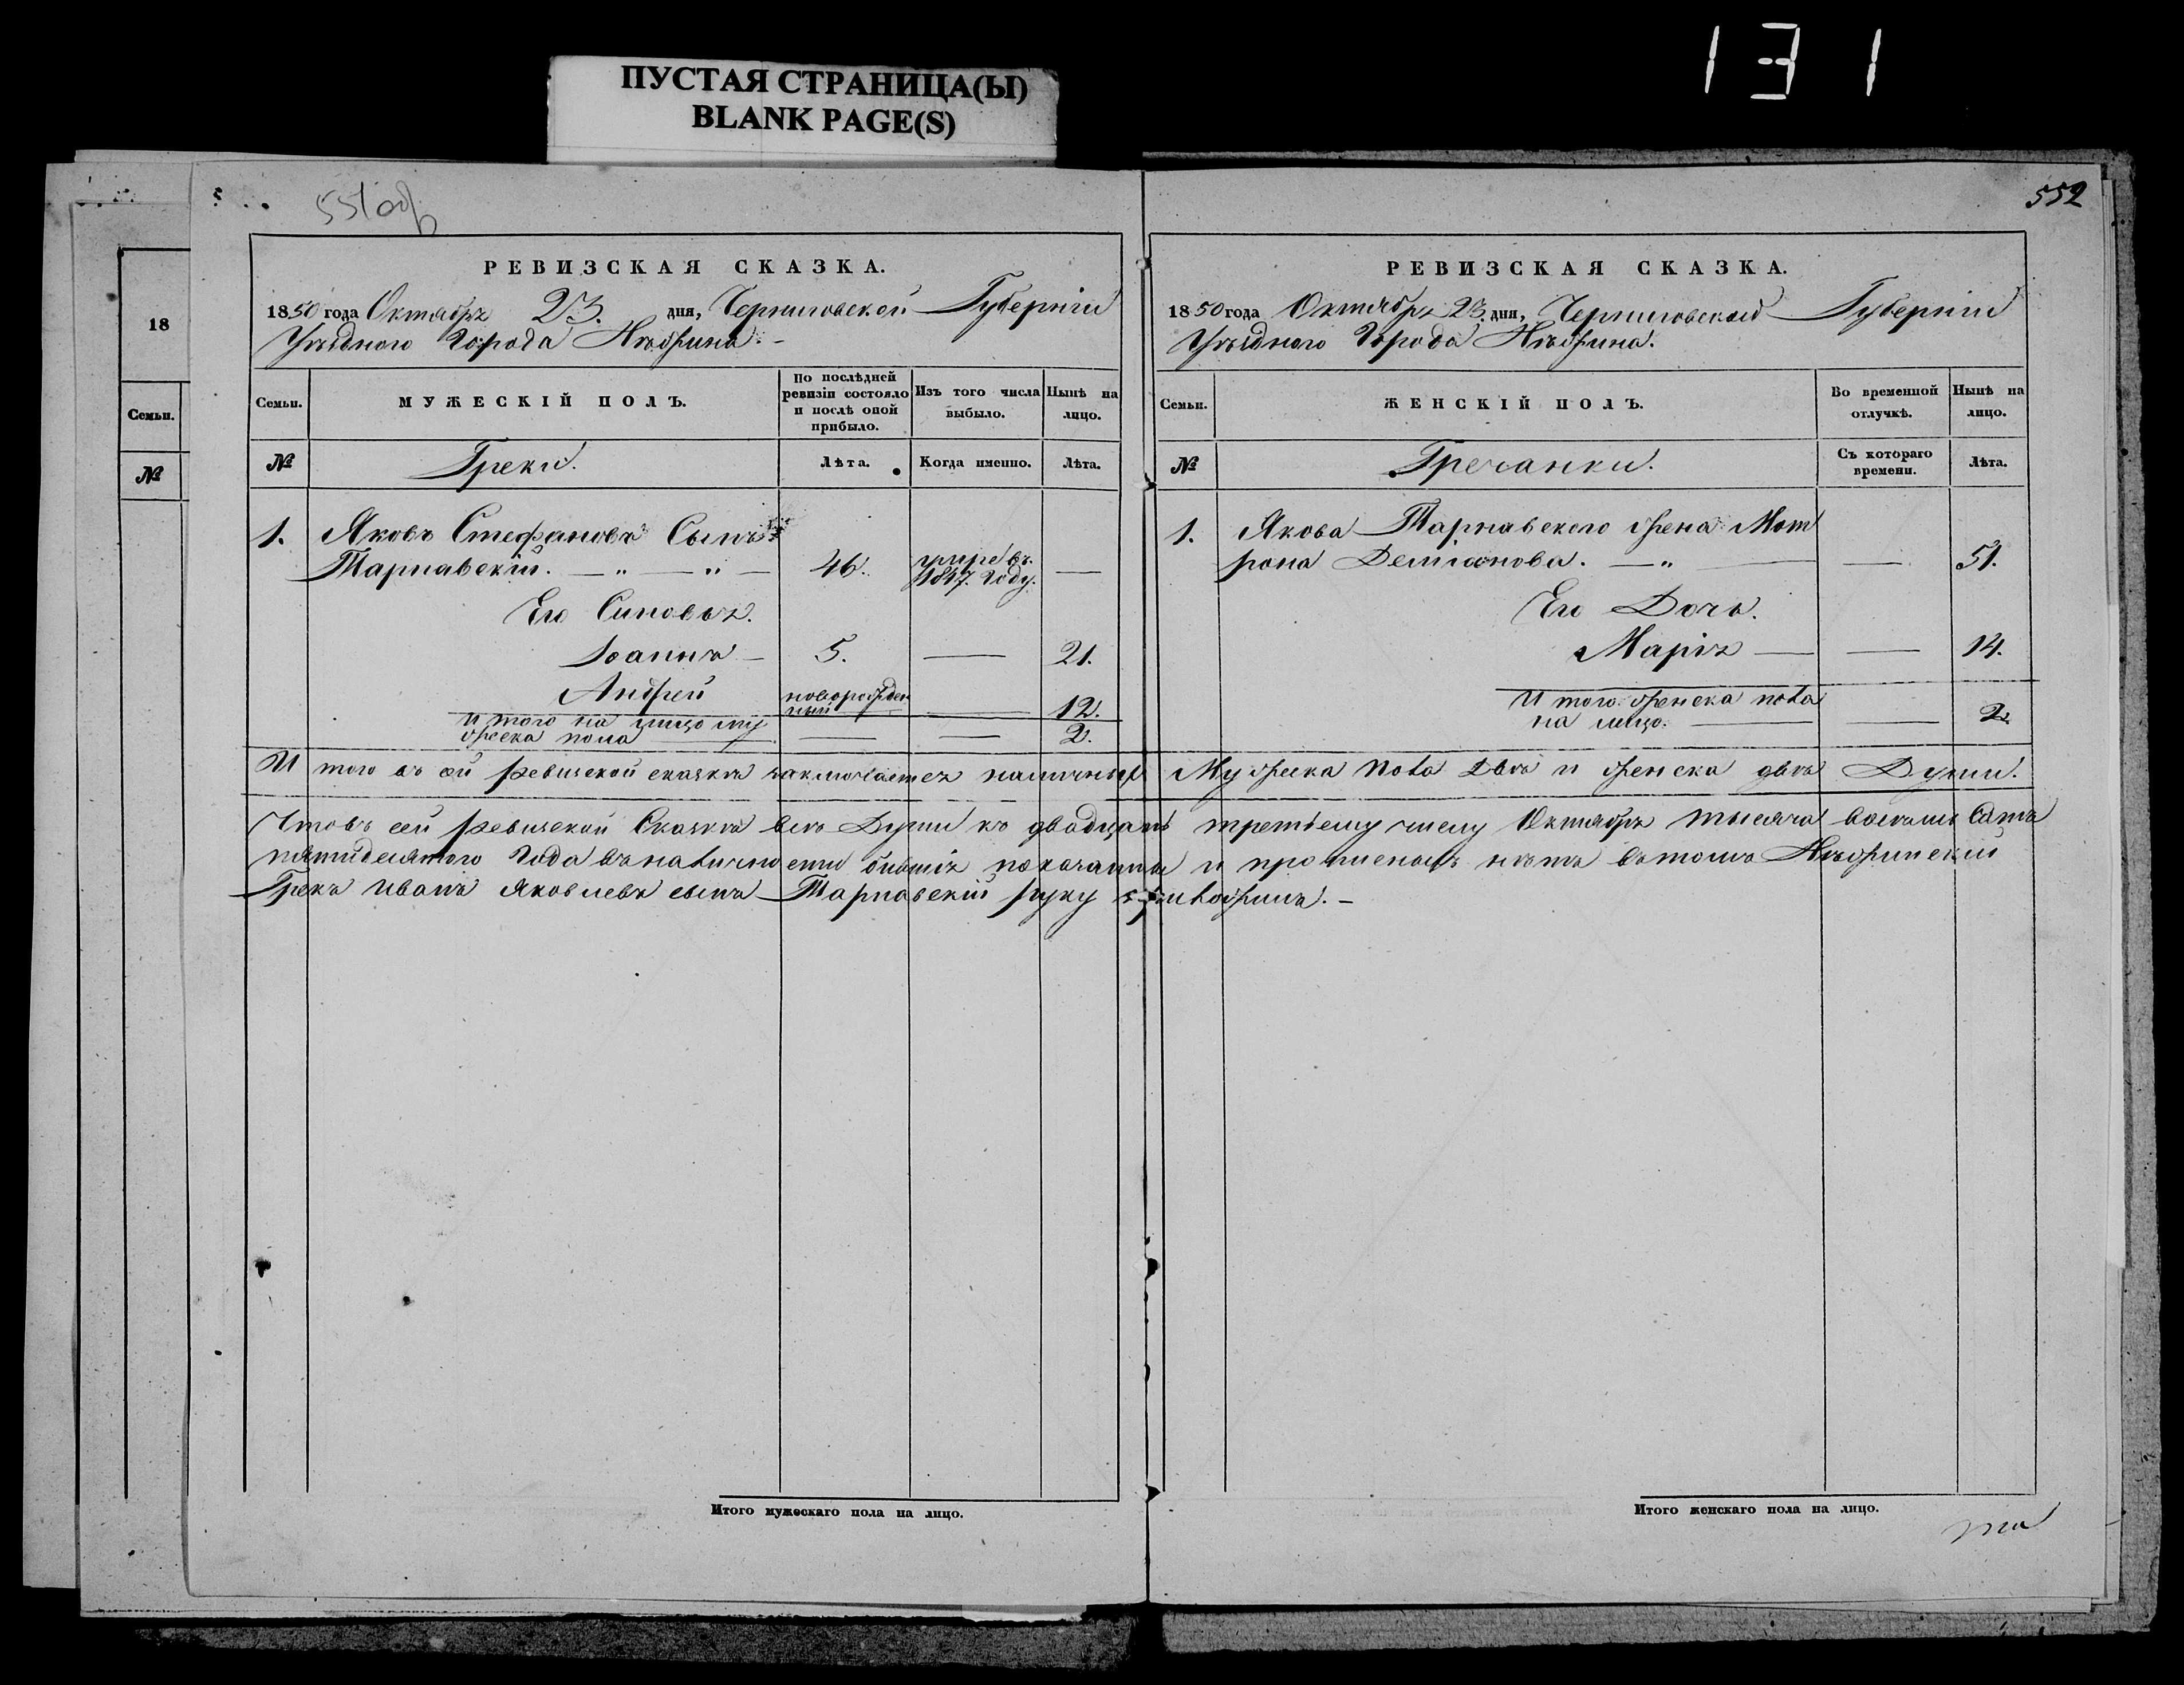 ПУСТАЯ СТРАНИЦА(Ы)
BLANK PAGE(S)
131
551об
РЕВИЗСКАЯ СКАЗКА.
1850 года Октября 23. дня, Черниговской Губерніи
Уѣзднаго Города Нѣжина.
Семьи.
МУЖЕСКІЙ ПОЛЪ.
По послѣдней ревизіи состояло и послѣ оной прибыло.
Изъ того числа выбыло.
Нынѣ на лицо.
№
Греки.
Лѣта.
Когда именно.
Лѣта.
1. Яковъ Стефановъ Сынъ
Тарнавскій. — „ — „ — 46. умре въ 1847. Году. —
Его Синовья.
Іоаннъ — 5. — 21.
Андрей новорожден
ный — 12.
И того на лицо му
жеска пола — — — 2.
18
Семьи.
№
552
РЕВИЗСКАЯ СКАЗКА.
1850 года Октября 23 дня, Черниговской Губерніи
Уѣзднаго Города Нѣжина.
Семьи.
ЖЕНСКІЙ ПОЛЪ.
Во временной отлучкѣ.
Нынѣ на лицо.
№
Гречанки.
Съ котораго времени.
Лѣта.
1. Якова Тарнавского жена Мот
рона Деміянова. — „ — — 51.
Его Дочь.
Марія — — 14.
И того женска пола
на лицо. — — 2.
И того въ сей ревизской сказкѣ заключается наличныхъ Мужеска пола двѣ и женска двѣ Души.
Что въ сей ревизской Сказкѣ всѣ Души къ двадцать третьему числу Октября тысяча восемь Сотъ
пятидесятого Года въ наличности бывшія показанны и прописныхъ нѣтъ въ томъ Нѣжинскій
Грекъ Иванъ Яковлевъ сынъ Тарнавскій руку приложилъ. —
Итого мужескаго пола на лицо.
Итого женскаго пола на лицо.